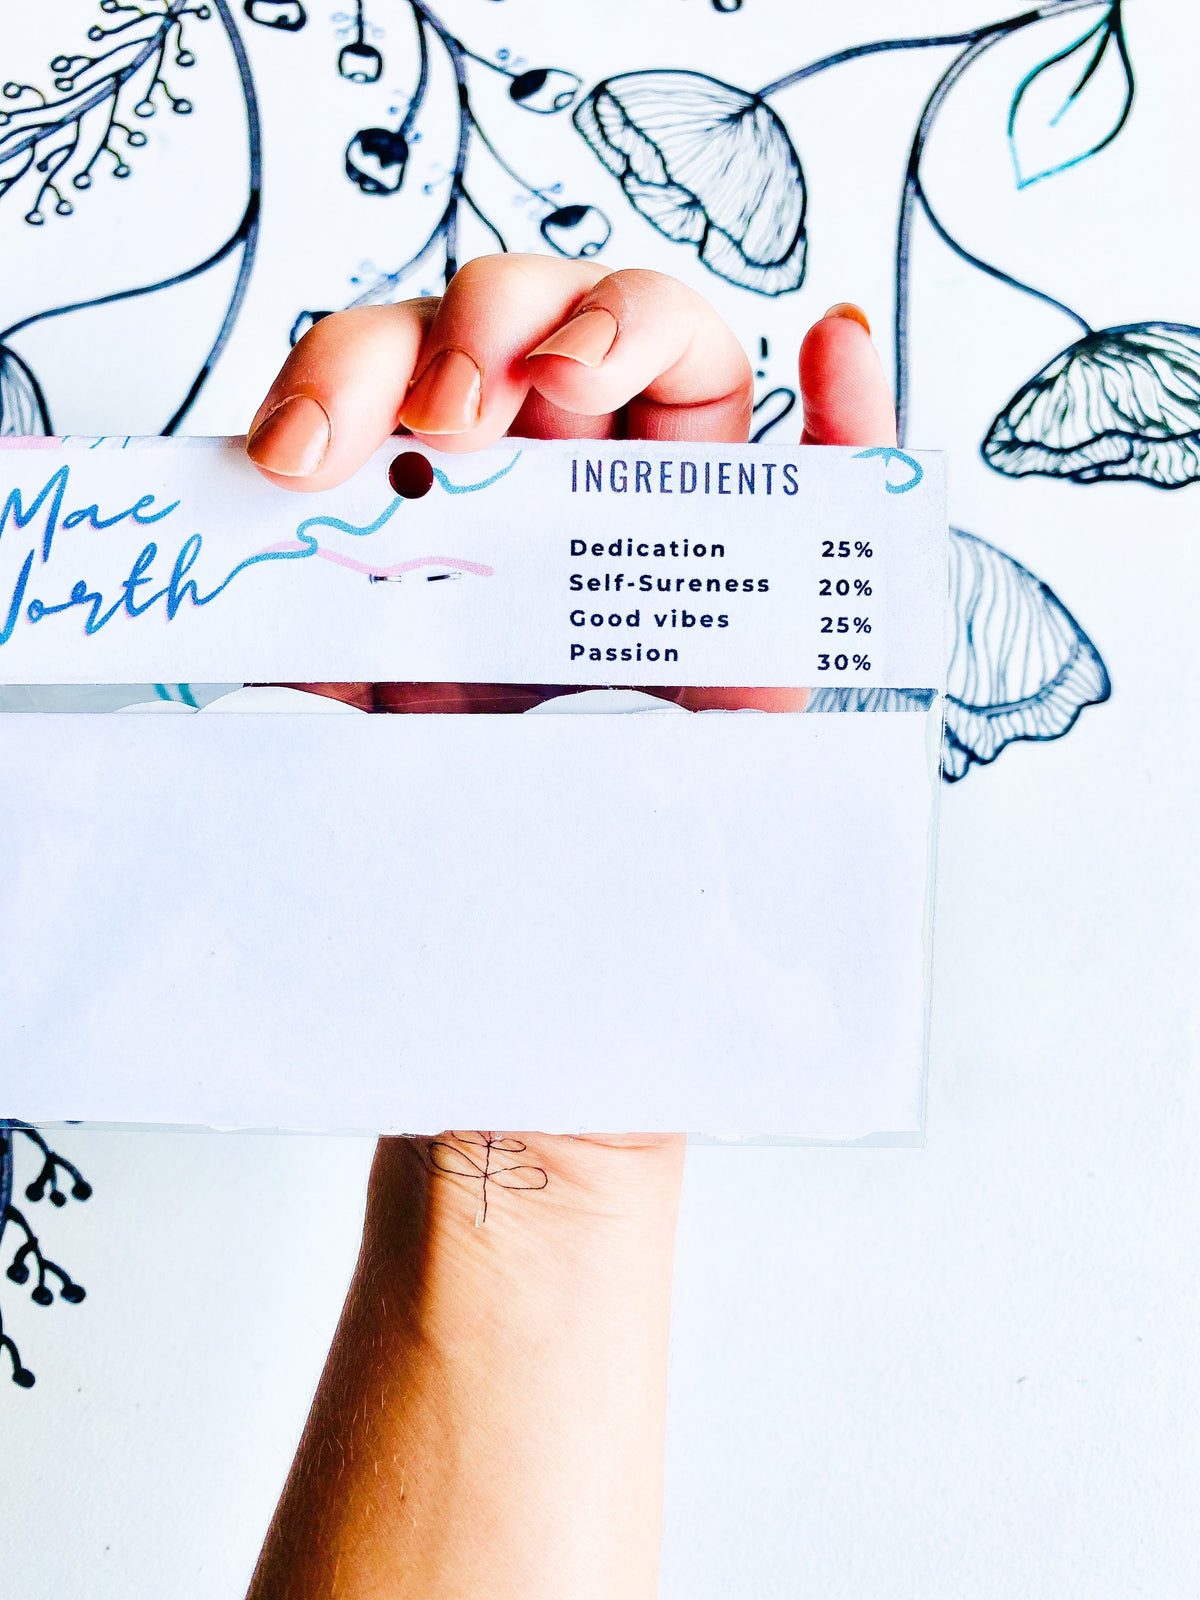 Mae
INGREDIENTS
Dedication 25%
Self-Sureness 20%
Good vibes 25%
Passion 30%